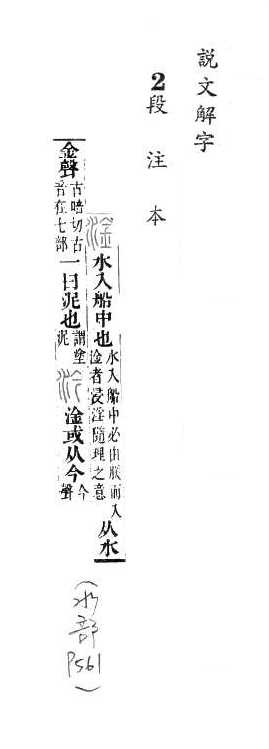 說文解字
2段注本
淦水入船中也水入船中必由朕而入淦者浸淫隨理之意从水
金聲古暗切古音在七部一曰泥也謂塗泥汵淦或从今今聲
(水部P561)